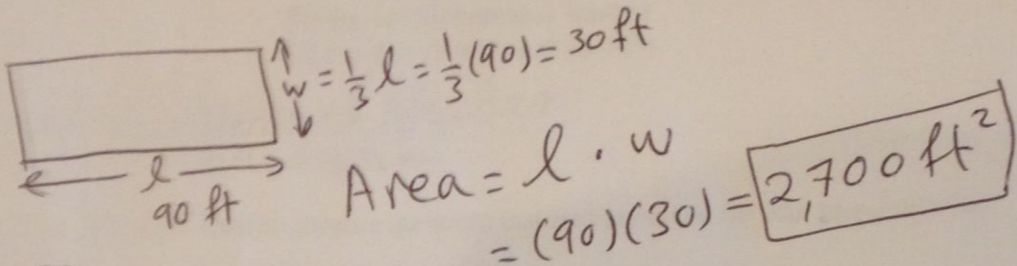 w = 1/3 l = 1/3 (90) = 30 ft
l
90 ft
Area = l · w
= (90)(30) = 2,700 ft²